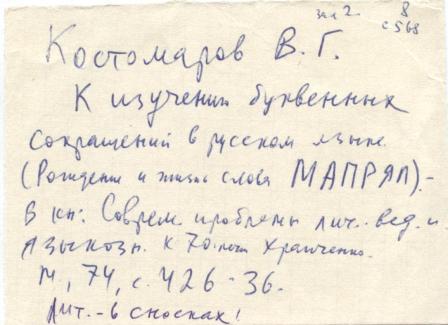 зал 2. 8
с568
Костомаров В. Г.
К изучению буквенных
сокращений в русском языке.
(Рождение и жизнь слова МАПРЯЛ).-
В кн: Соврем. проблемы лит.-вед. и
языкозн. К 70-летию Храпченко.
М, 74, с. 426-36.
Лит. - в сносках!